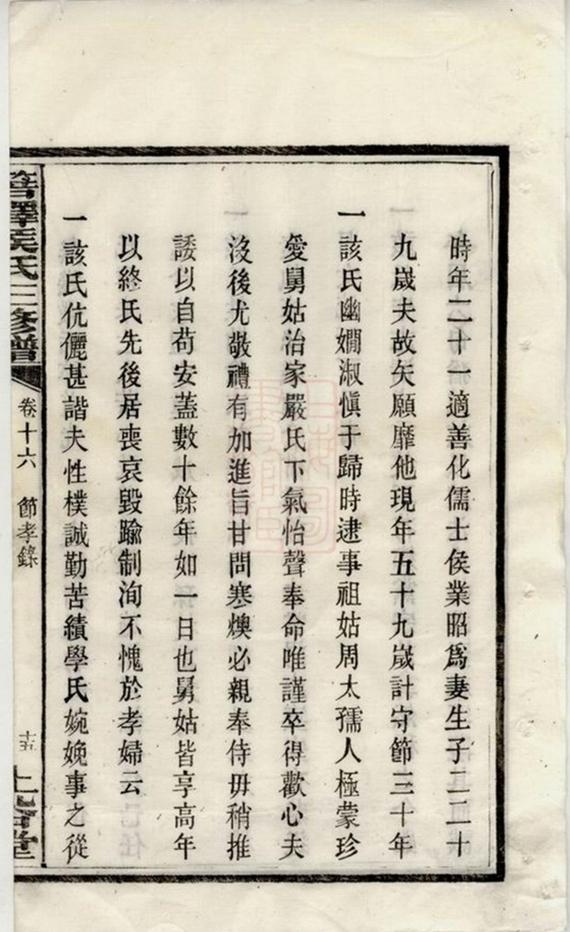 時年二十一適善化儒士侯業昭為妻生子二二十
九歲夫故矢願靡他現年五十九歲計守節三十年
一該氏幽嫺淑慎于歸時逮事祖姑周太孺人極蒙珍
愛舅姑治家嚴氏下氣怡聲奉命唯謹卒得歡心夫
沒後尤敬禮有加進旨甘問寒燠必親奉侍毋稍推
諉以自苟安蓋數十餘年如一日也舅姑皆享高年
以終氏先後居喪哀毀踰制洵不愧於孝婦云
一該氏伉儷甚諧夫性樸誠勤苦績學氏婉娩事之從
氏三修譜
卷十六 節孝錄
十五
上谷堂